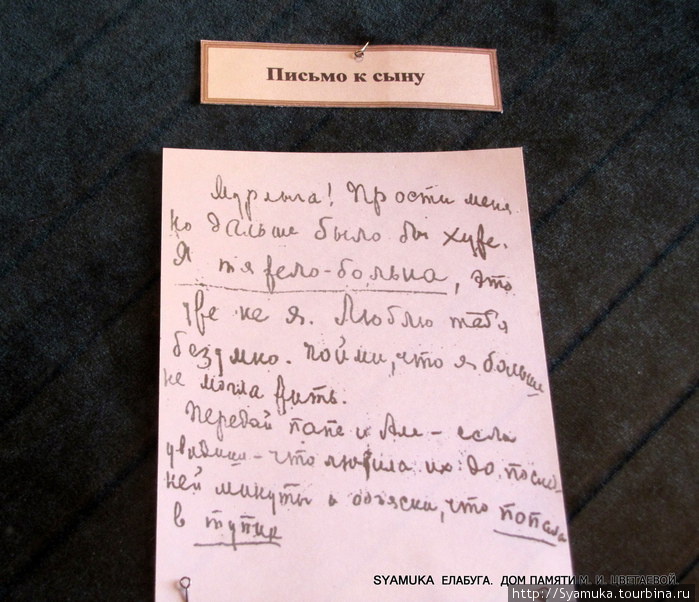 Письмо к сыну
Мурлыга! Прости меня.
Но дальше было бы хуже.
Я тяжело-больна, это
уже не я. Люблю тебя
безумно. Пойми, что я больше
не могла жить.
Передай папе и Але – если
увидишь – что любила их до послед-
ней минуты и объясни, что попала
в тупик
SYAMUKA ЕЛАБУГА. ДОМ ПАМЯТИ М. И. ЦВЕТАЕВОЙ.
http://Syamuka.tourbina.ru